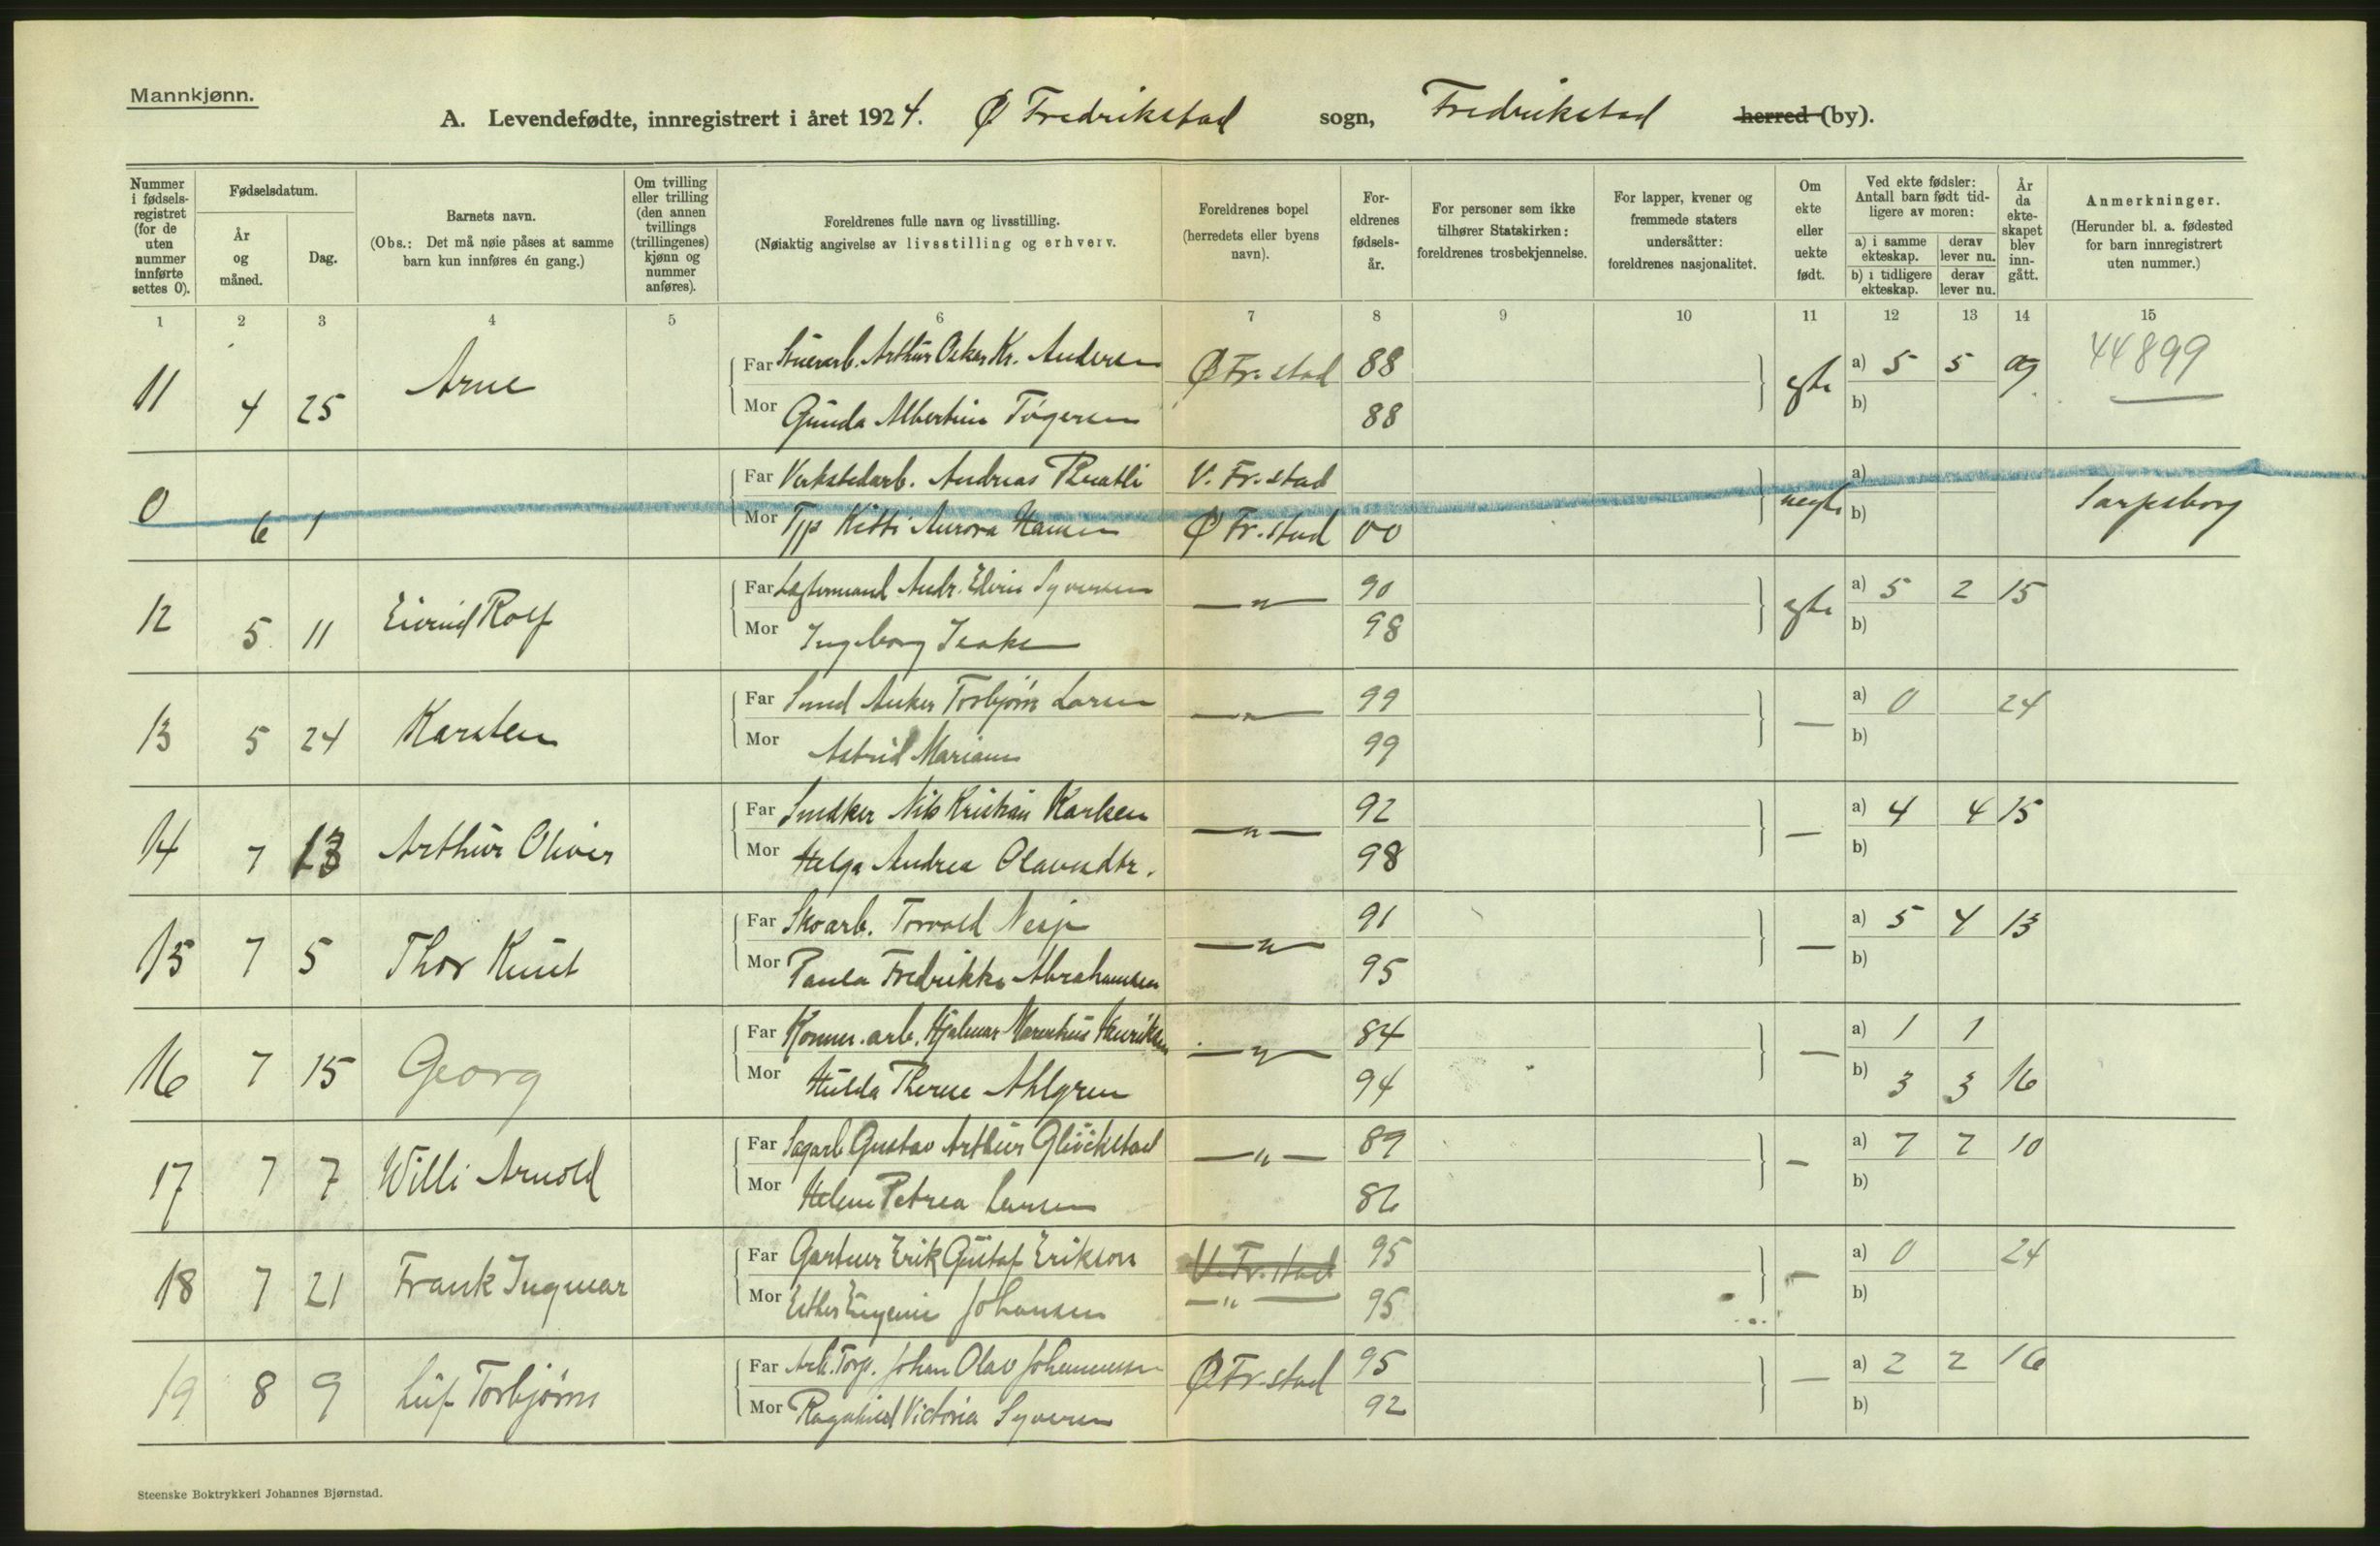 Mannkjønn.
A. Levendefødte, innregistrert i året 1924. Ø Fredrikstad sogn, Fredrikstad herred (by).
Nummer i fødsels-registret (for de uten nummer innførte settes 0).
Fødselsdatum.
År og måned.
Dag.
Barnets navn.
(Obs.: Det må nøie påses at samme barn kun innføres én gang.)
Om tvilling eller trilling (den annen tvillings (trillingenes) kjønn og nummer anføres).
Foreldrenes fulle navn og livsstilling.
(Nøiaktig angivelse av livsstilling og erhverv.
Foreldrenes bopel (herredets eller byens navn).
For-eldrenes fødsels-år.
For personer som ikke tilhører Statskirken: foreldrenes trosbekjennelse.
For lapper, kvener og fremmede staters undersåtter: foreldrenes nasjonalitet.
Om ekte eller uekte født.
Ved ekte fødsler: Antall barn født tid-ligere av moren:
a) i samme ekteskap.
derav lever nu.
b) i tidligere ekteskap.
derav lever nu.
År da ekte-skapet blev inn-gått.
Anmerkninger.
(Herunder bl. a. fødested for barn innregistrert uten nummer.)
1 2 3 4 5 6 7 8 9 10 11 12 13 14 15
11 4 25 Arne Far Arthur Osker Kr. Andersen Ø Fr.stad 88 egte a) 5 5 09 44899
Mor Gunda Albertine Tøgersen 88 b)
0 6 1 Far Verkstedarb. Andreas V. Fr.stad uegte a) Sarpsborg
Mor Tjp Kitti Aurora Hansen Ø Fr.stad 00 b)
12 5 11 Eivind Rolf Far Andr. Edvin Syversen —"— 90 egte a) 5 2 15
Mor Ingeborg 98 b)
13 5 24 Karsten Far Smed Anker Torbjørn Larsen —"— 99 — a) 0 24
Mor Astrid Mariane 99 b)
14 7 13 Arthur Oliver Far Snedker Nils Kristian Karlsen —"— 92 — a) 4 4 15
Mor Helga Andrea Olavesdtr. 98 b)
15 7 5 Thor Knut Far Skoarb. Torvald —"— 91 — a) 5 4 13
Mor Paula Fredrikke Abrahamsen 95 b)
16 7 15 Georg Far Hjalmar Henriksen —"— 84 — a) 1 1
Mor Hulda Therese Ahlgren 94 b) 3 3 16
17 7 7 Willi Arnold Far Sagarb Gustav Arthur Glückstad —"— 89 — a) 7 7 10
Mor Helene Petrea 86 b)
18 7 21 Frank Ingmar Far Gartner Erik Gustaf Erikson V. Fr.stad 95 — a) 0 24
Mor Esther Eugenie Johansen —"— 95 b)
19 8 9 Leif Torbjørn Far Arb. Torp. Johan Olav Johannessen Ø Fr.stad 95 — a) 2 2 16
Mor Ragnhild Victoria Syversen 92 b)
Steenske Boktrykkeri Johannes Bjørnstad.